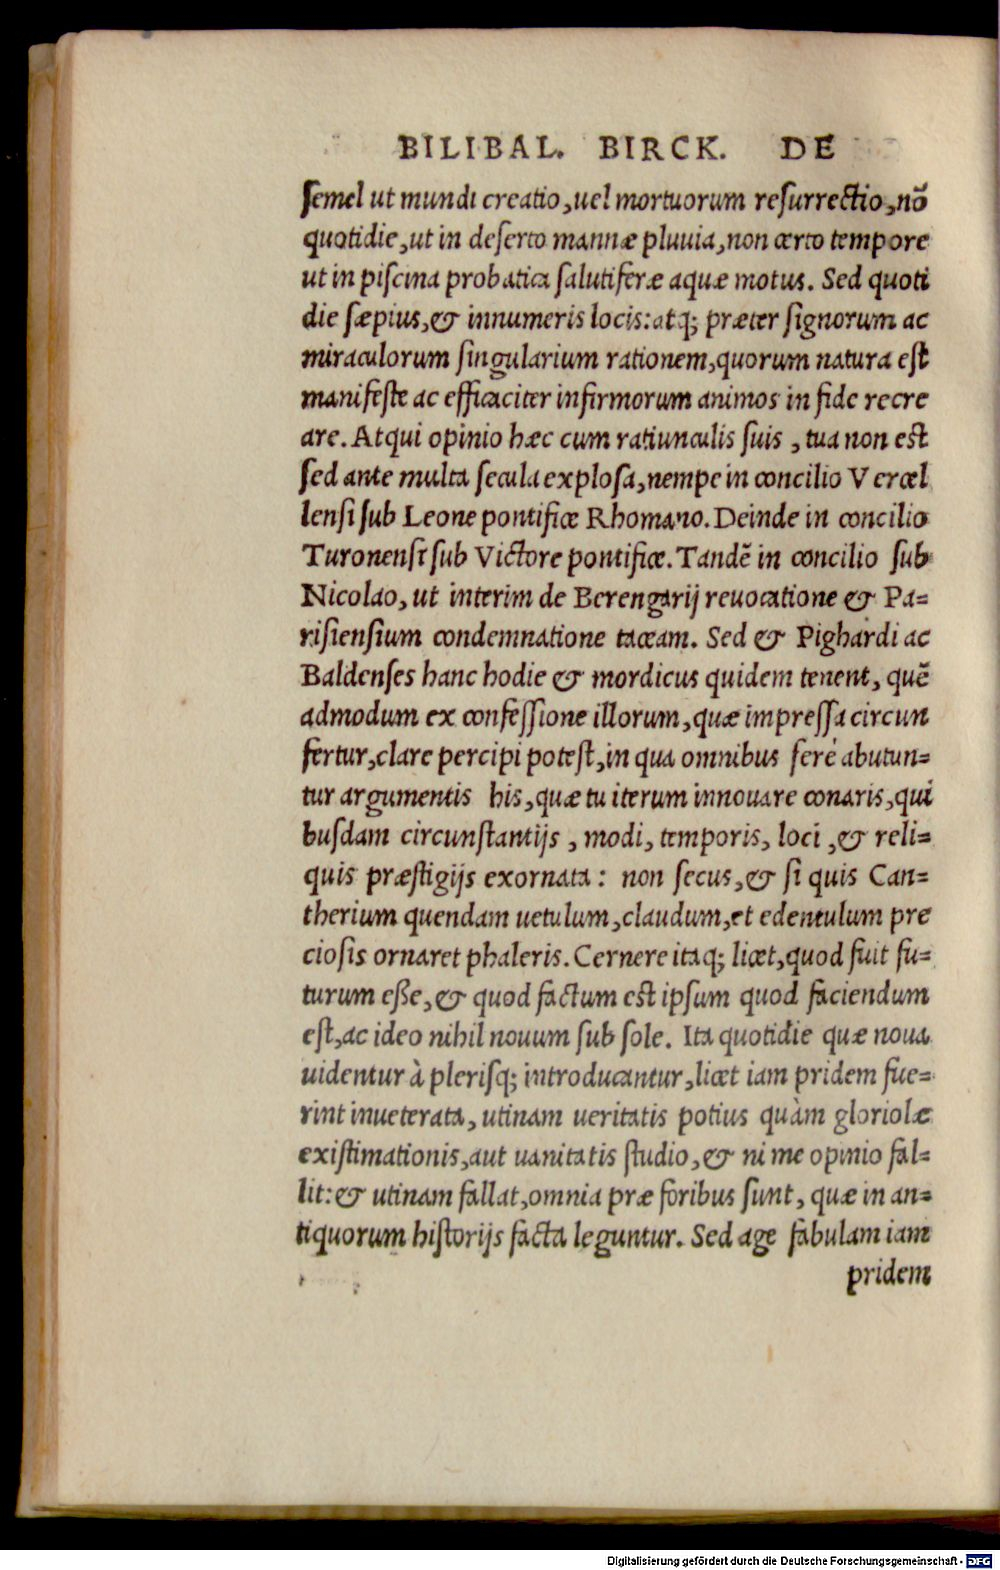 BILIBAL. BIRCK. DE
semel ut mundi creatio, uel mortuorum resurrectio, nõ
quotidie, ut in deserto mannæ pluuia, non certo tempore
ut in piscina probatica salutiferæ aquæ motus. Sed quoti
die sæpius, & innumeris locis: atq; præter signorum ac
miraculorum singularium rationem, quorum natura est
manifeste ac efficaciter infirmorum animos in fide recre
are. Atqui opinio hæc cum ratiunculis suis, tua non est
sed ante multa secula explosa, nempe in concilio Vercel
lensi sub Leone pontifice Rhomano. Deinde in concilio
Turonensi sub Victore pontifice. Tandẽ in concilio sub
Nicolao, ut interim de Berengarij reuocatione & Pa=
risiensium condemnatione taceam. Sed & Pighardi ac
Baldenses hanc hodie & mordicus quidem tenent, quẽ
admodum ex confessione illorum, quæ impressa circun
fertur, clare percipi potest, in qua omnibus ferè abutun=
tur argumentis his, quæ tu iterum innouare conaris, qui
busdam circunstantijs, modi, temporis, loci, & reli=
quis præstigijs exornata: non secus, & si quis Can=
therium quendam uetulum, claudum, et edentulum pre
ciosis ornaret phaleris. Cernere itaq; licet, quod fuit fu=
turum eße, & quod factum est ipsum quod faciendum
est, ac ideo nihil nouum sub sole. Ita quotidie quæ noua
uidentur à plerisq; introducantur, licet iam pridem fue=
rint inueterata, utinam ueritatis potius quàm gloriolæ
existimationis, aut uanitatis studio, & ni me opinio fal=
lit: & utinam fallat, omnia præ foribus sunt, quæ in an=
tiquorum historijs facta leguntur. Sed age fabulam iam
pridem
Digitalisierung gefördert durch die Deutsche Forschungsgemeinschaft - DFG